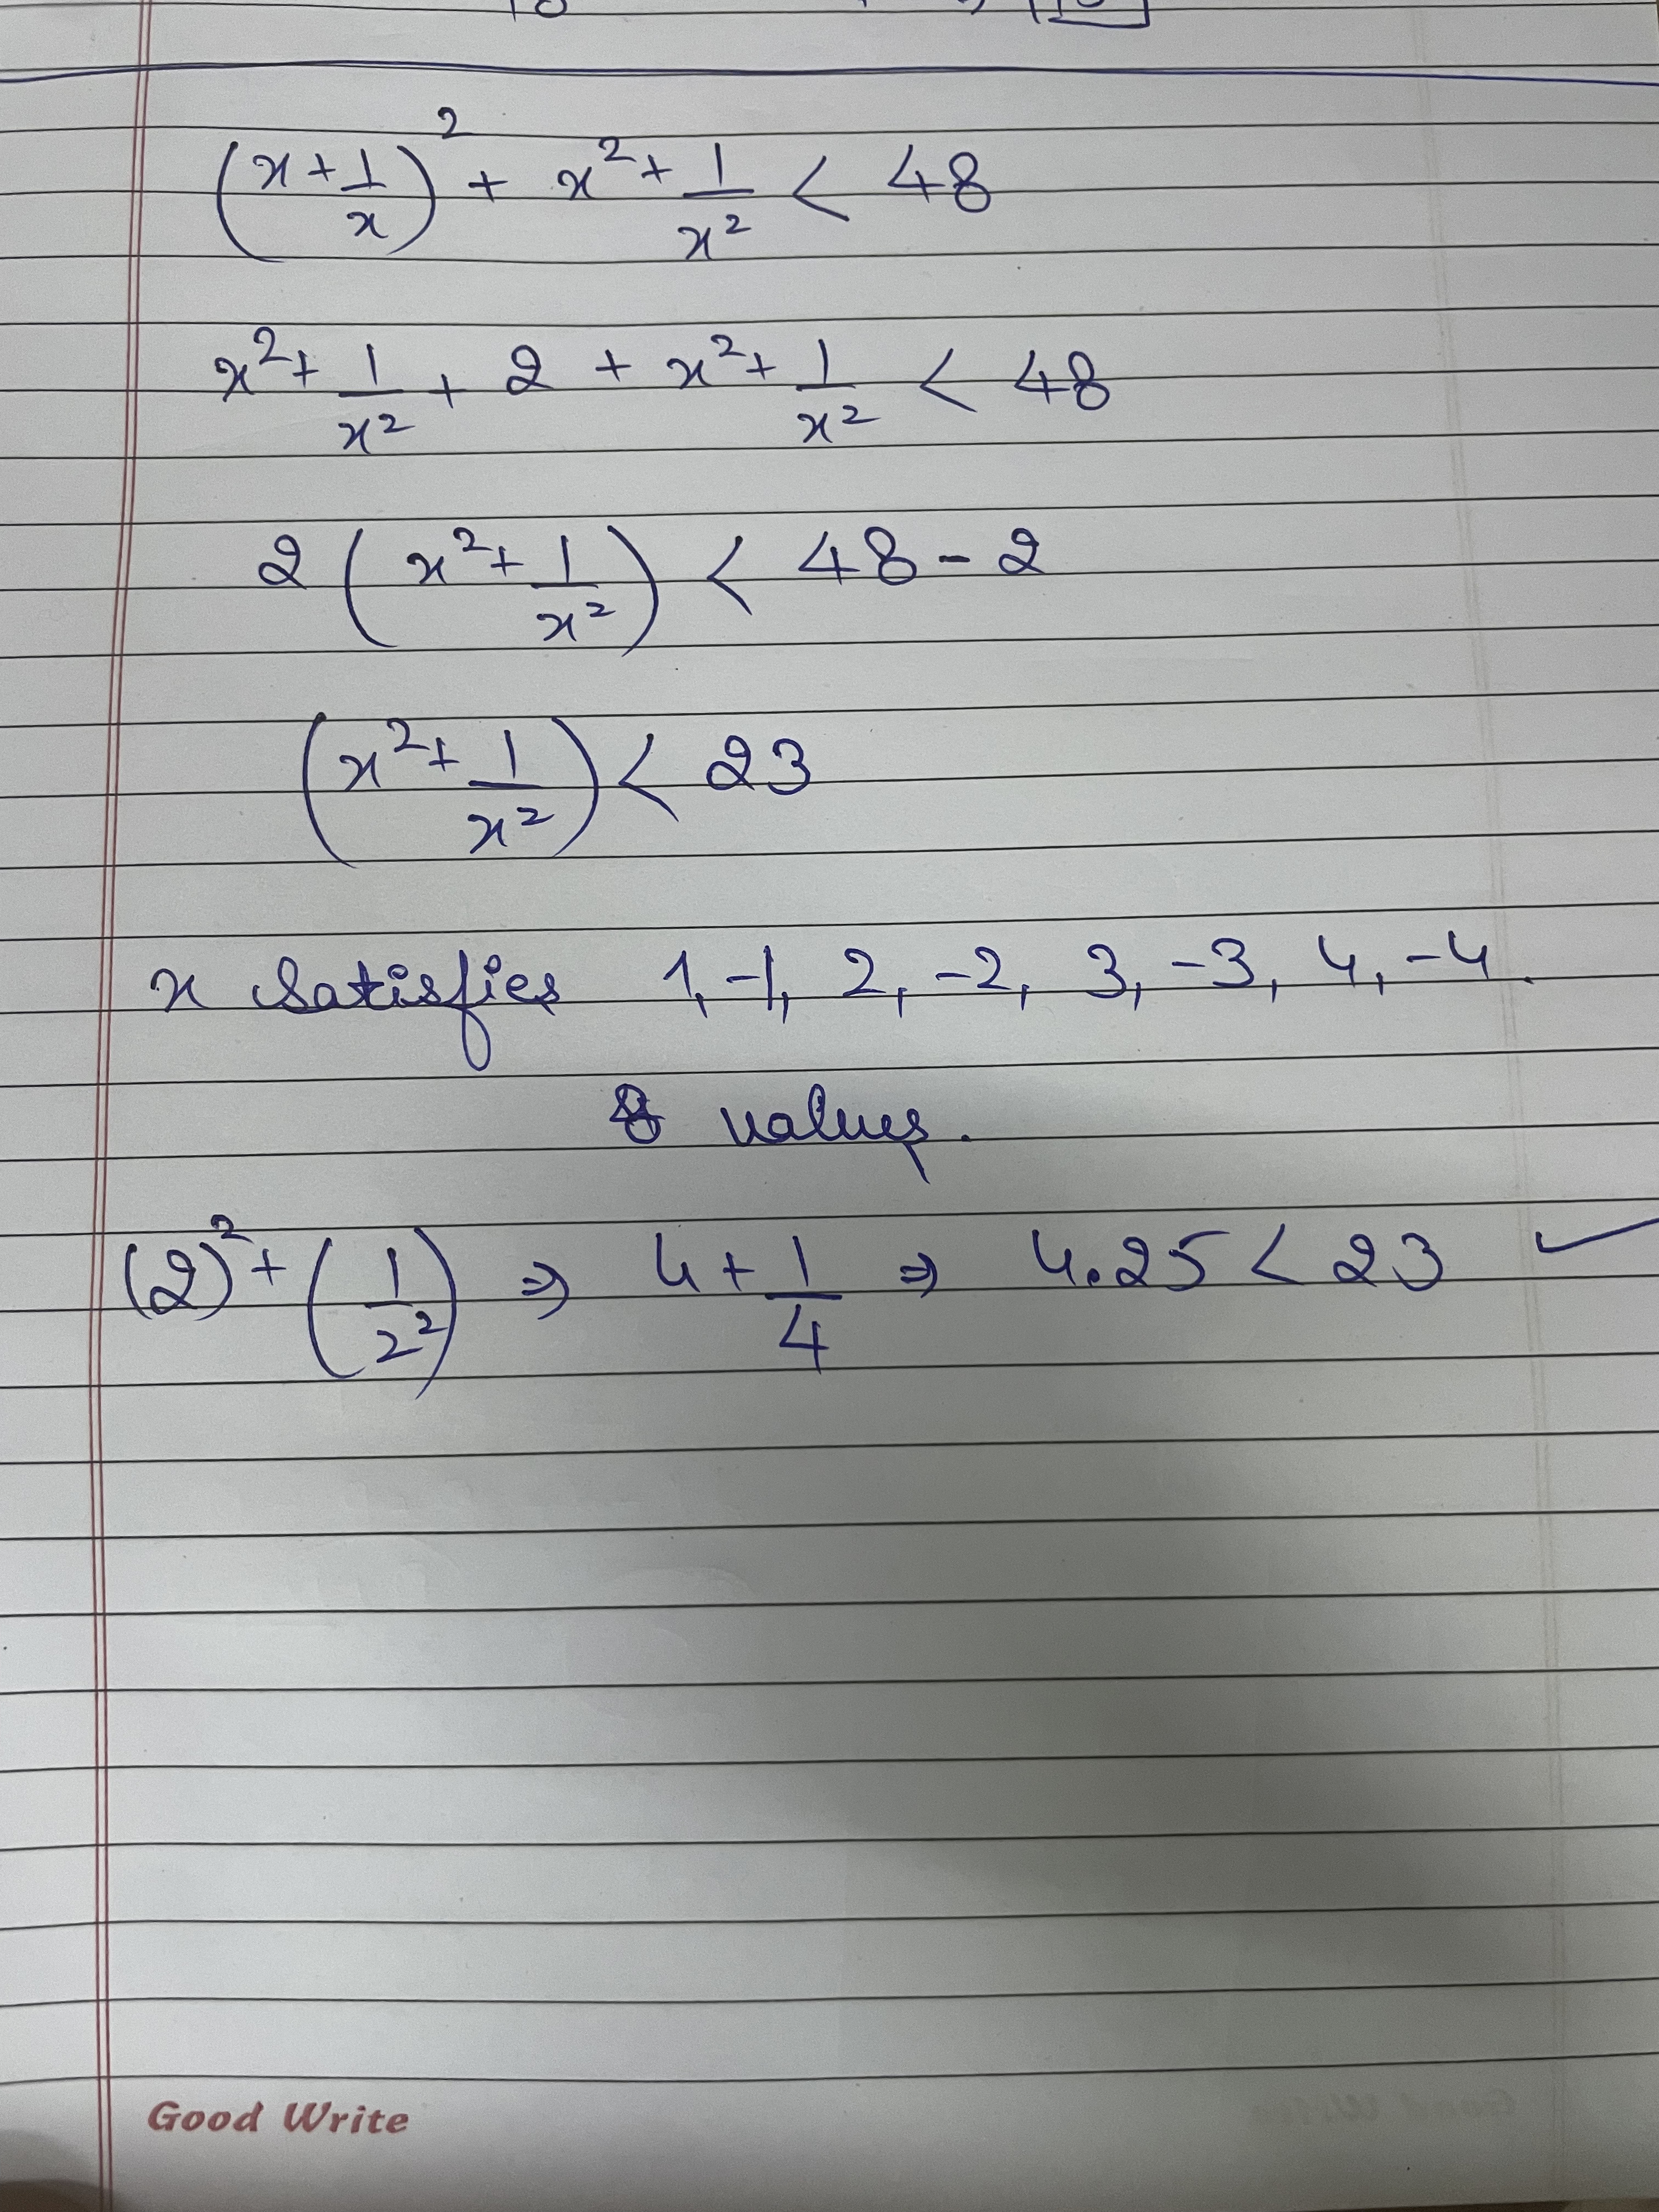 (x + 1/x)² + x² + 1/x² < 48
x² + 1/x² + 2 + x² + 1/x² < 48
2 (x² + 1/x²) < 48 - 2
(x² + 1/x²) < 23
x satisfies 1, -1, 2, -2, 3, -3, 4, -4.
8 values.
(2)² + (1/2²) ⇒ 4 + 1/4 ⇒ 4.25 < 23 ✓
Good Write